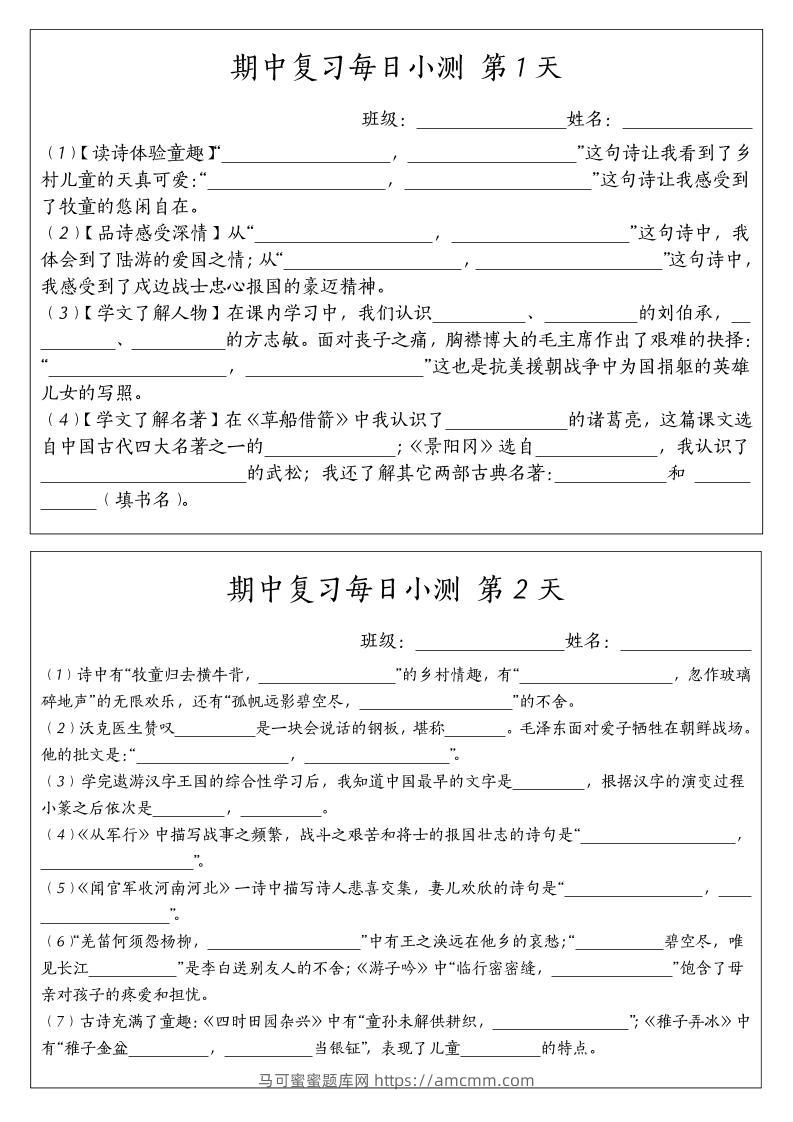 期中复习每日小测 第 1 天
班级：________________姓名：______________
（1）【读诗体验童趣】“__________________，__________________”这句诗让我看到了乡
村儿童的天真可爱：“___________________，____________________”这句诗让我感受到
了牧童的悠闲自在。
（2）【品诗感受深情】从“___________________，___________________”这句诗中，我
体会到了陆游的爱国之情；从“___________________，____________________”这句诗中，
我感受到了戍边战士忠心报国的豪迈精神。
（3）【学文了解人物】在课内学习中，我们认识__________、__________的刘伯承，__
________、__________的方志敏。面对丧子之痛，胸襟博大的毛主席作出了艰难的抉择：
“___________________，___________________”这也是抗美援朝战争中为国捐躯的英雄
儿女的写照。
（4）【学文了解名著】在《草船借箭》中我认识了_____________的诸葛亮，这篇课文选
自中国古代四大名著之一的______________；《景阳冈》选自_____________，我认识了
______________________的武松；我还了解其它两部古典名著：____________和 ______
______（填书名）。
期中复习每日小测 第 2 天
班级：________________姓名：______________
（1）诗中有“牧童归去横牛背，_________________”的乡村情趣，有“___________________，忽作玻璃
碎地声”的无限欢乐，还有“孤帆远影碧空尽，___________________”的不舍。
（2）沃克医生赞叹__________是一块会说话的钢板，堪称________。毛泽东面对爱子牺牲在朝鲜战场。
他的批文是：“___________________，__________________”。
（3）学完遨游汉字王国的综合性学习后，我知道中国最早的文字是_________，根据汉字的演变过程
小篆之后依次是_________，__________。
（4）《从军行》中描写战事之频繁，战斗之艰苦和将士的报国壮志的诗句是“___________________，
___________________”。
（5）《闻官军收河南河北》一诗中描写诗人悲喜交集，妻儿欢欣的诗句是“_________________，____
________________”。
（6）“羌笛何须怨杨柳，___________________”中有王之涣远在他乡的哀愁；“___________碧空尽，唯
见长江___________”是李白送别友人的不舍；《游子吟》中“临行密密缝，_______________”饱含了母
亲对孩子的疼爱和担忧。
（7）古诗充满了童趣：《四时田园杂兴》中有“童孙未解供耕织，_________________”；《稚子弄冰》中
有“稚子金盆__________，___________当银钲”，表现了儿童__________的特点。
马可蜜蜜题库网 https://amcmm.com